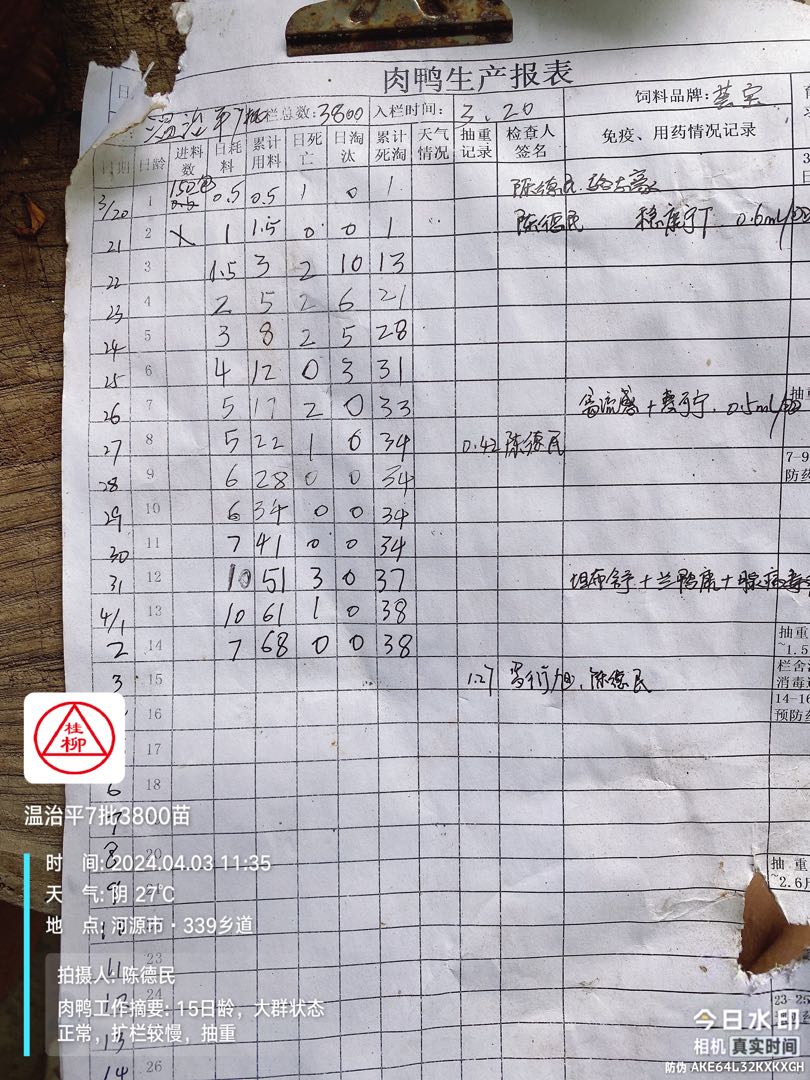 肉鸭生产报表
日
栏总数:3800 入栏时间: 3.20 饲料品牌:
日期 日龄 进料数 日耗料 累计用料 日死亡 日淘汰 累计死淘 天气情况 抽重记录 检查人签名 免疫、用药情况记录
3/20 1 150包 0.5 0.5 1 0 1 陈德民
21 2 1 1.5 0 0 1 陈德民 0.6ml/
22 3 1.5 3 2 10 13
23 4 2 5 2 6 21
24 5 3 8 2 5 28
25 6 4 12 0 3 31
26 7 5 17 2 0 33 0.5ml/
27 8 5 22 1 0 34 0.42 陈德民
28 9 6 28 0 0 34
29 10 6 34 0 0 34
30 11 7 41 0 0 34
31 12 10 51 3 0 37
4/1 13 10 61 1 0 38
2 14 7 68 0 0 38
3 15 1.27 陈德民
16
17
6 18
7
8 20
9
23
11
12 24
13
14 26
抽重
7-9
防药
抽重
~1.5
栏舍
消毒
14-16
预防药
抽重
~2.6
23-25
桂柳
温治平7批3800苗
时 间: 2024.04.03 11:35
天 气: 阴 27℃
地 点: 河源市·339乡道
拍摄人: 陈德民
肉鸭工作摘要: 15日龄，大群状态
正常，扩栏较慢，抽重
今日水印
相机 真实时间
防伪 AKE64L32KXKXGH